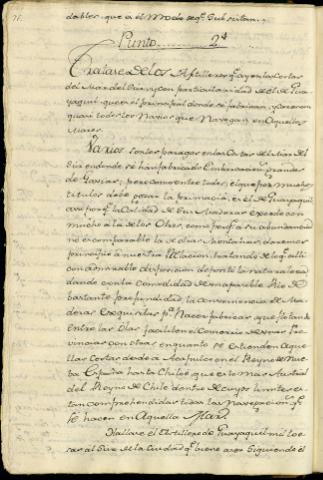 dables, que a el Modo de q.e Subsistan.
Punto 2.o
Tratase de los Astilleros q.e ay en las Costas
del Mar del Sur, y con particularidad de el de Gua-
yaquil, que es el principal donde se fabrican, y carenan
quasi todos los Navios que Navegan en Aquellos
Mares.
Varios son los parages en las Costas de el Mar del
Sur en donde se han fabricado Embarcaciones grandes
de Gavias; pero como entre todos, el que por muchos
titulos debe gozar la primacia, es el de Guayaquil
assi por q.e la Calidad de sus Maderas excede con
mucho a la de los Otros, como por q.e su abundancia
no es comparable la de otras Montañas, daremos
principio a nuestra Relacion, tratando de lo q.e alli
con admirable disposicion depositò la naturaleza
dando con la comodidad de un apacible Rio de
bastante profundidad, la conveniencia de Ma-
deras Exquisitas p.a Navios
entre las Olas faciliten el Comercio de unas Pro-
vincias con otras en quanto se estienden Aque-
llas Costas desde Acapulco en el Reyno de Nue-
ba España hasta Chiloè que es lo mas Austral
del Reyno de Chile dentro de cuyos limites es-
tan comprehendidas todas las Navegaciones q.e
se hacen en Aquella Mar.
Hallase el Astillero de Guayaquil mui cer-
ca al Sur de la Ciudad q.e tiene Siguiendo el